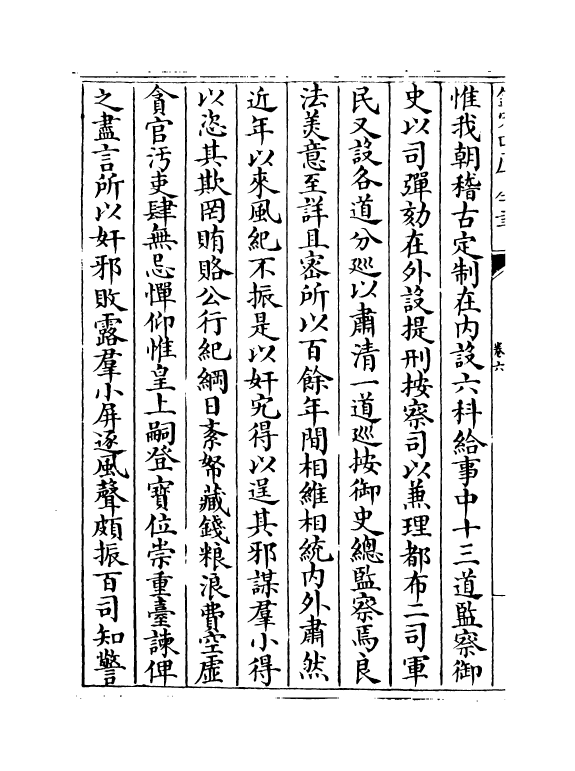 卷六
惟我朝稽古定制在内設六科給事中十三道監察御
史以司彈劾在外設提刑按察司以兼理都布二司軍
民又設各道分巡以肅清一道巡按御史總監察焉良
法美意至詳且密所以百餘年間相維相統内外肅然
近年以來風紀不振是以奸宄得以逞其邪謀羣小得
以恣其欺罔賄賂公行紀綱日紊帑藏錢粮浪費空虛
貪官汚吏肆無忌憚仰惟皇上嗣登寶位崇重臺諫俾
之盡言所以奸邪敗露羣小屏逐風聲頗振百司知警